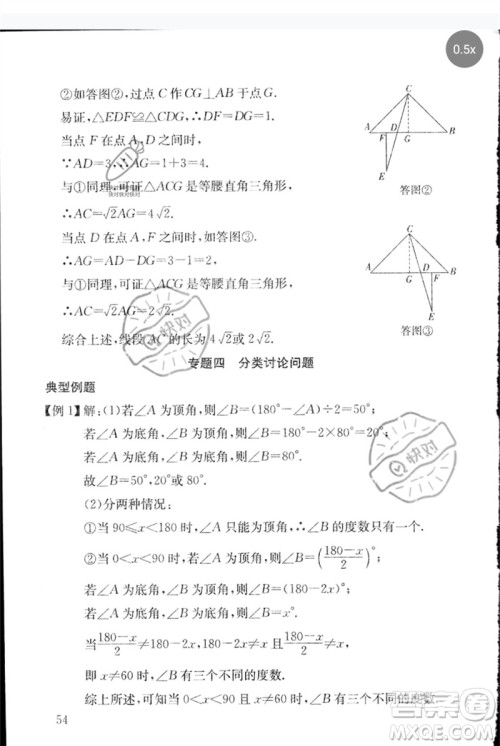 0.5x
②如答图②,过点C作CG⊥AB于点G.
易证,△EDF≌△CDG,∴DF=DG=1.
当点F在点A,D之间时,
∵AD=3,∴AG=1+3=4.
与①同理,可证△ACG是等腰直角三角形,
∴AC=√2AG=4√2.
当点D在点A,F之间时,如答图③,
∴AG=AD-DG=3-1=2.
与①同理,可证△ACG是等腰直角三角形,
∴AC=√2AG=2√2.
综合上述,线段AC的长度为4√2或2√2.
C
A F D G B
E
答图②
C
A G D F B
E
答图③
专题四 分类讨论问题
典型例题
【例1】解:(1)若∠A为顶角,则∠B=(180°-∠A)÷2=50°;
若∠A为底角,∠B为顶角,则∠B=180°-2×80°=20°;
若∠A为底角,∠B为底角,则∠B=80°.
故∠B=50°,20°或80°.
(2)分两种情况:
①当90≤x<180时,∠A只能为顶角,∴∠B的度数只有一个.
②当0<x<90时,若∠A为顶角,则∠B=(180-x/2)°;
若∠A为底角,∠B为顶角,则∠B=(180-2x)°;
若∠A为底角,∠B为底角,则∠B=x°.
当180-x/2≠180-2x,180-2x≠x,180-x/2≠x,
即x≠60时,∠B有三个不同的度数.
综上所述,可知当0<x<90且x≠60时,∠B有三个不同的度数.
54
快对
快对